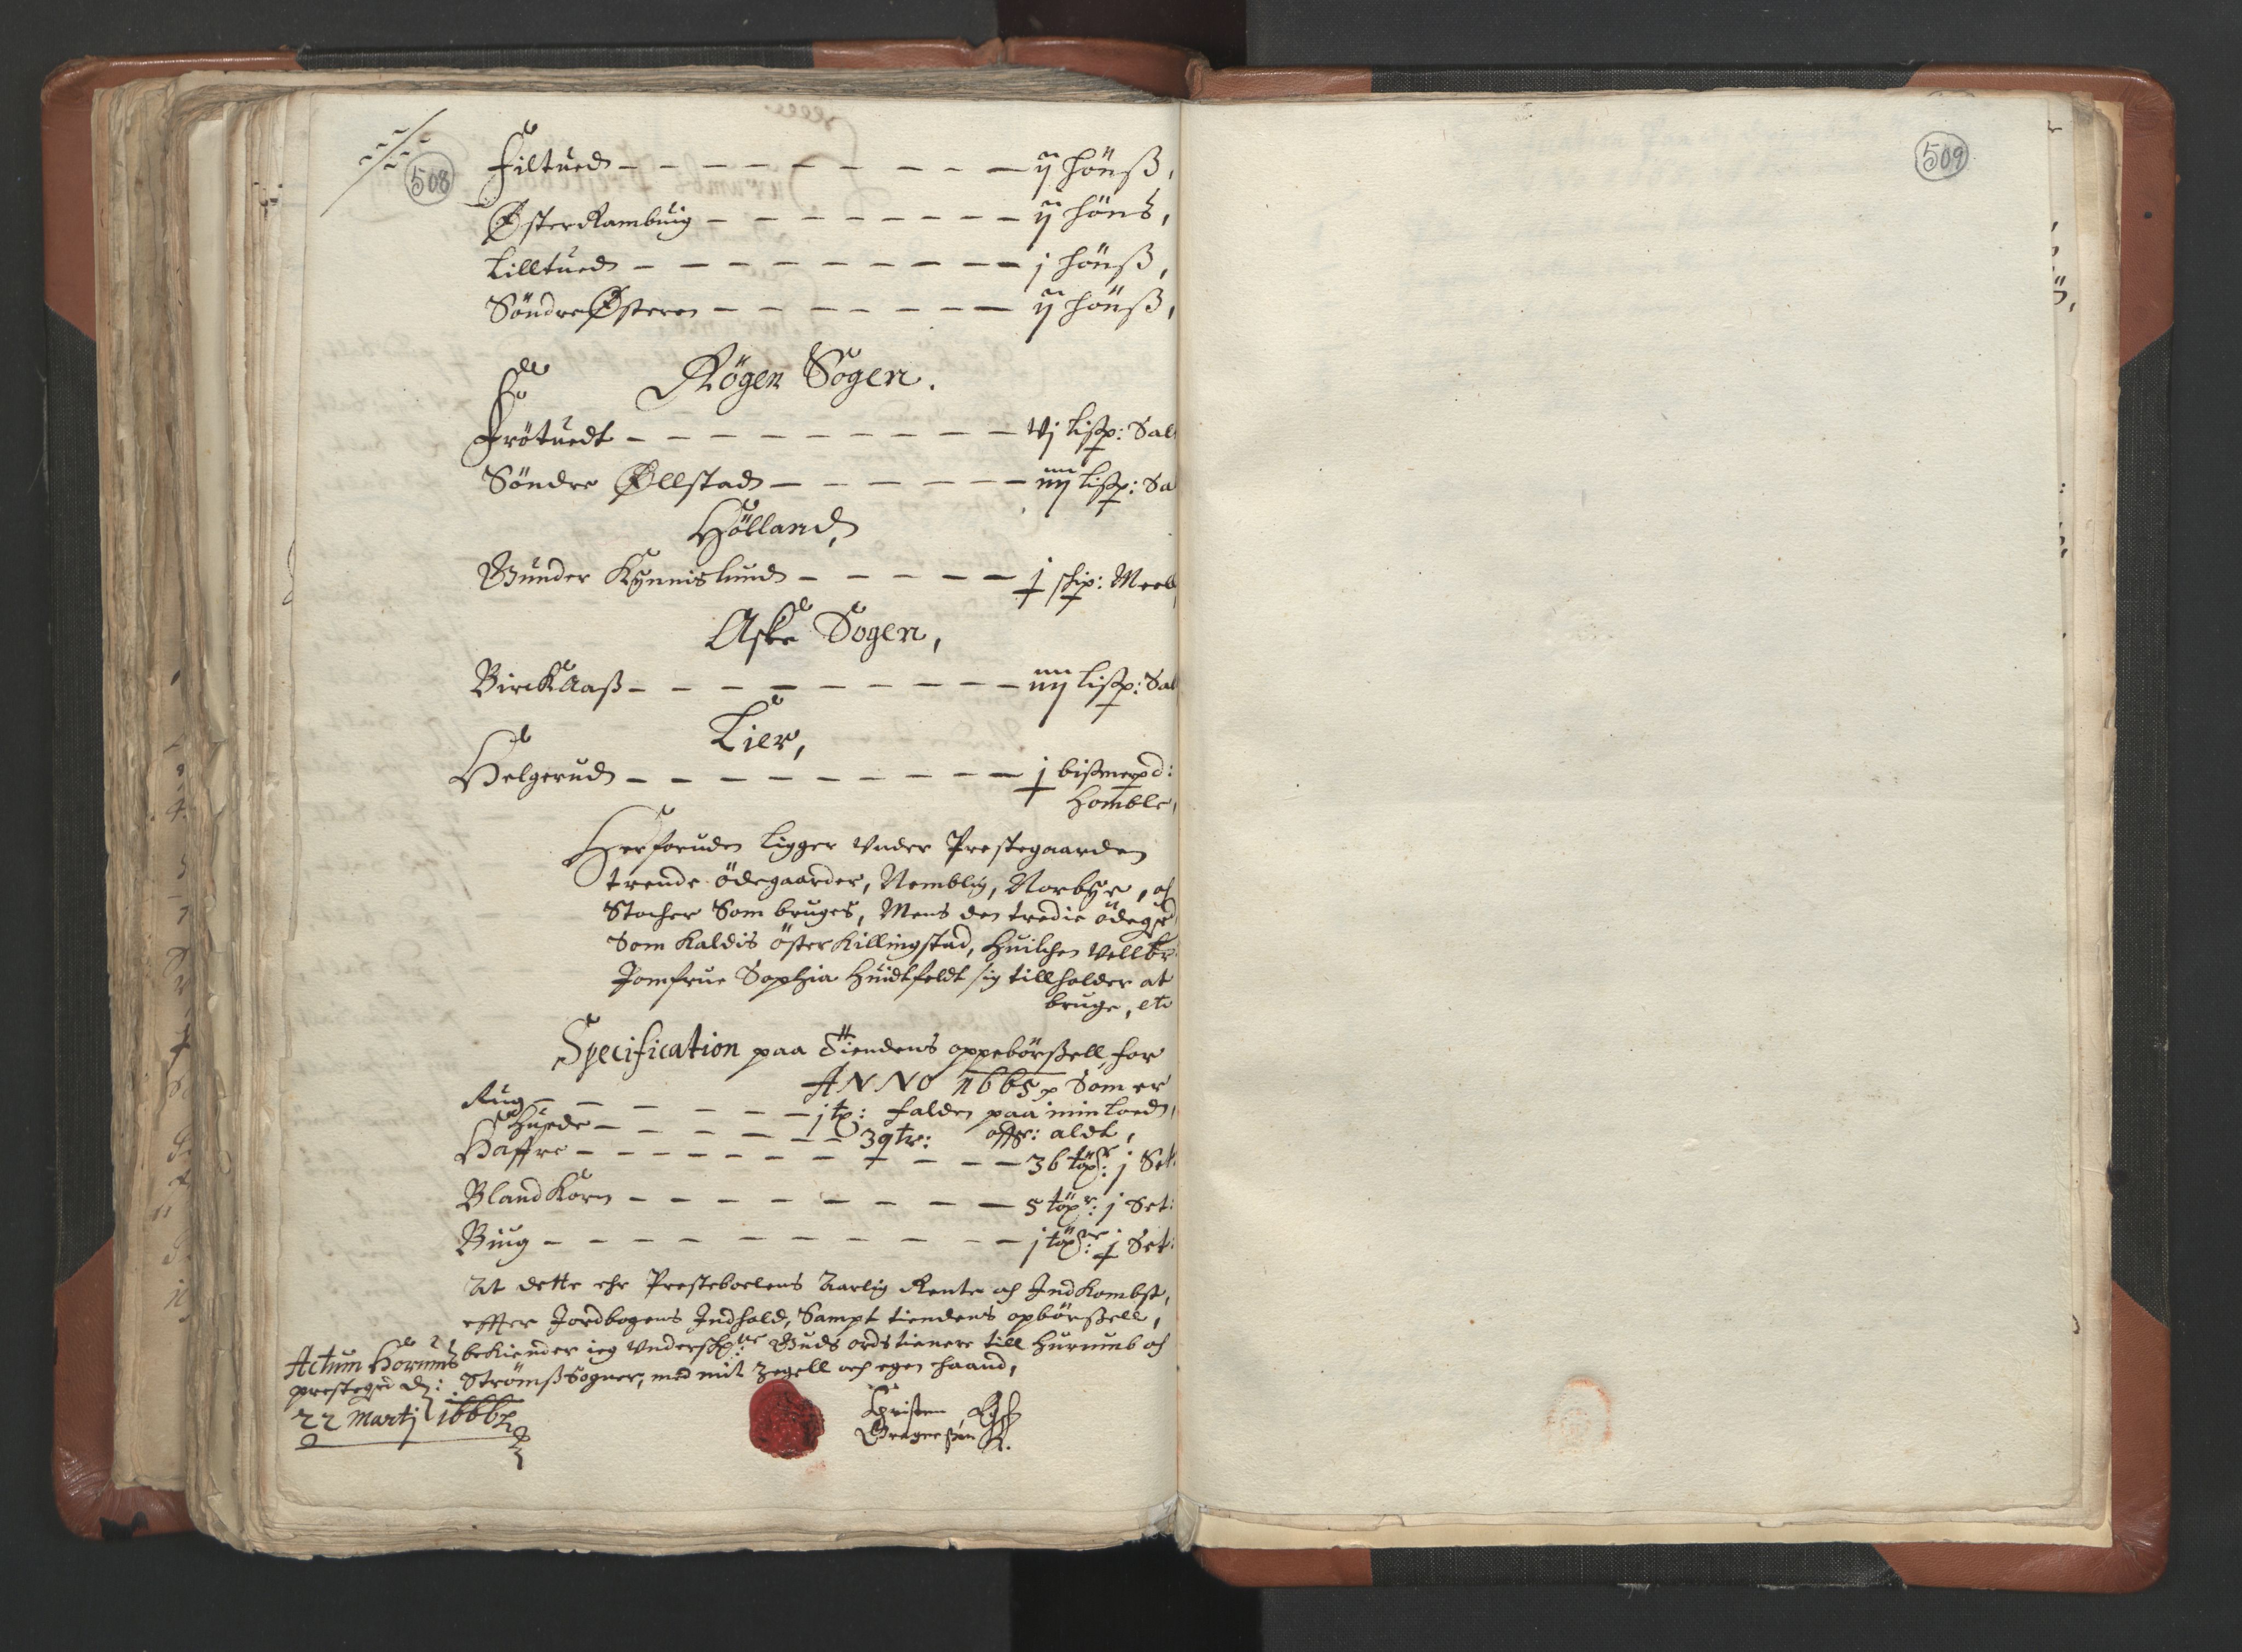 508
Filtued — ij hönß,
Øster Rambuig — ij höns,
Lilltued — j hönß,
Söndre Østeren — ij hönß,
Rögen Sogen.
Frötuedt — vj lißp: Sal
Söndre Øllstad — iiij lißp: Sa
Hölland,
Wunder Kynnislund — j skip: Meel
Aske Sogen,
Birckaaß — iiij lißp: Sal
Lier,
Helgerud — j bißmerpd:
Homble,
Herforuden ligger under Prestegaarden
trende ödegaarder, Nemblig, Norbye, och
Stocher Som bruges, Mens den tredie ödegrd
Som Kaldis öster Killingstad, Huilchen Vellbr
Jomfrue Sophia Huidtfeldt sig tillholder at
bruge, etc
Specification paa Tiendens oppebörßell, for
ANNO 1665, Som er
Rug — j tp: falden paa min loed,
Huede — 3 qtr: aldt,
Haffre — 36 töpr: j Set:
Bland Korn — 5 töpr: j Set:
Biug — j töpr: j Set:
At dette ehr Presteboelens Aarlig Rente och IndKombst,
effter Jordbogens Indhold, Sampt tiendens opbörßell,
bekiender ieg underschr: Guds ords tienere till Hurumb och
Strömß Sogner, med mit Zegell och egen haand,
Actum Horumbs
prestegrd d:
22 Martj 1666
Christen
Gregersøn
509